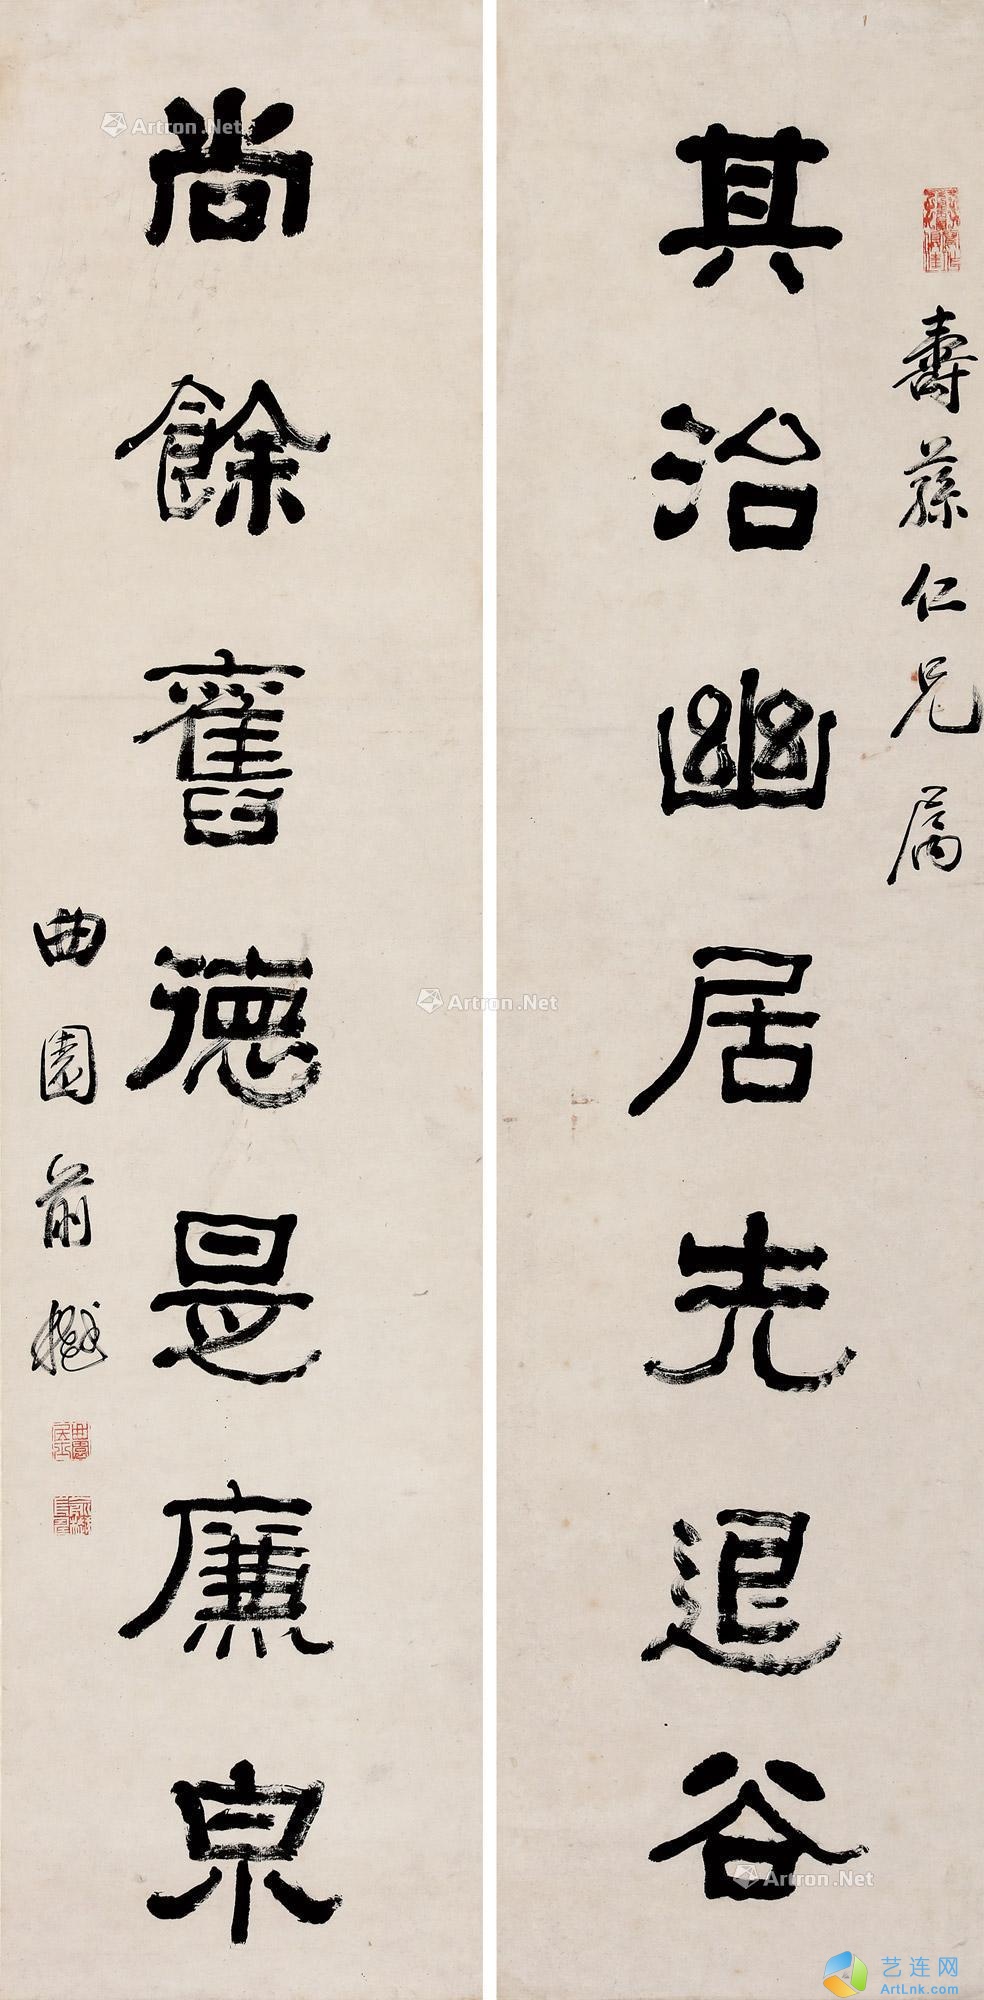 其治幽居先退谷
壽蓀仁兄属
尚餘舊德是廉泉
曲園俞樾
Artron.Net
Artron.Net
Artron.Net
艺连网
ArtLnk.com